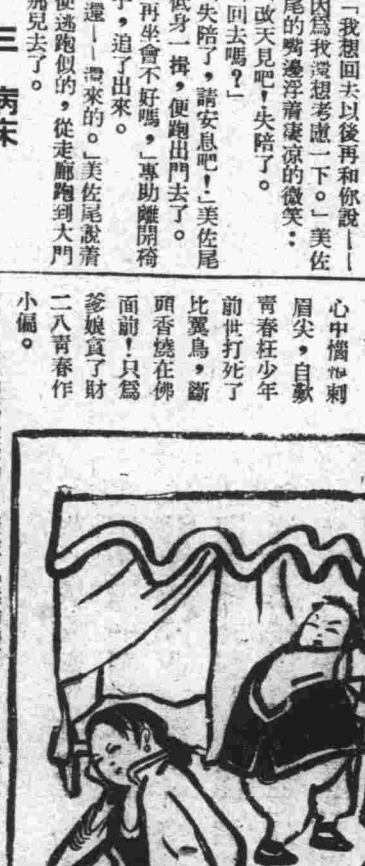 「我想回去以後再和你說——
因爲我還想考慮一下。」美佐
尾的嘴邊浮着凄凉的微笑：
改天見吧！失陪了。
回去嗎？」
失陪了，請安息吧！」美佐尾
低身一揖，便跑出門去了。
再坐會不好嗎，」專助離開椅
子，追了出來。
還——還來的。」美佐尾說着
便逃跑似的，從走廊跑到大門
那兒去了。
三 病床
心中惱恨刺
眉尖，自歎
靑春枉少年
前世打死了
比翼鳥，斷
頭香燒在佛
面前！只爲
爹娘貪了財
二八靑春作
小偏。